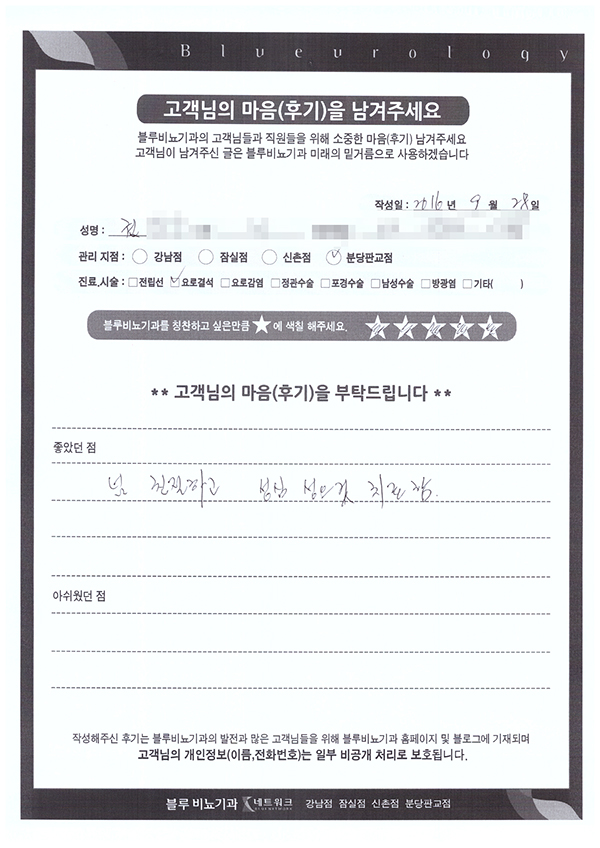 Blueurology
고객님의 마음(후기)을 남겨주세요
블루비뇨기과의 고객님들과 직원들을 위해 소중한 마음(후기) 남겨주세요
고객님이 남겨주신 글은 블루비뇨기과 미래의 밑거름으로 사용하겠습니다
작성일 : 2016 년 9 월 28 일
성명 : 전
관리 지점 : 강남점 잠실점 신촌점 분당판교점
진료.시술 : 전립선 요로결석 요로감염 정관수술 포경수술 남성수술 방광염 기타( )
블루비뇨기과를 칭찬하고 싶은만큼 ★에 색칠 해주세요.
** 고객님의 마음(후기)을 부탁드립니다 **
좋았던 점
넘 친절하고 성심 성의껏 치료함.
아쉬웠던 점
작성해주신 후기는 블루비뇨기과의 발전과 많은 고객님들을 위해 블루비뇨기과 홈페이지 및 블로그에 기재되며
고객님의 개인정보(이름,전화번호)는 일부 비공개 처리로 보호됩니다.
블루 비뇨기과 네트워크 강남점 잠실점 신촌점 분당판교점